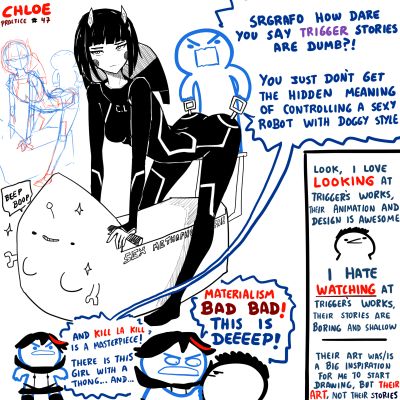 CHLOE
PRACTICE # 47
SRGRAFO HOW DARE
YOU SAY TRIGGER STORIES
ARE DUMB?!
YOU JUST DON'T GET
THE HIDDEN MEANING
OF CONTROLLING A SEXY
ROBOT WITH DOGGY STYLE
BEEP
BOOP
SEX METAPHOR
LOOK, I LOVE
LOOKING AT
TRIGGER'S WORKS,
THEIR ANIMATION AND
DESIGN IS AWESOME
I HATE
WATCHING AT
TRIGGER'S WORKS,
THEIR STORIES ARE
BORING AND SHALLOW
THEIR ART WAS/IS
A BIG INSPIRATION
FOR ME TO START
DRAWING, BUT THEIR
ART, NOT THEIR STORIES
AND KILL LA KILL
IS A MASTERPIECE!
THERE IS THIS
GIRL WITH A
THONG... AND...
MATERIALISM
BAD BAD!
THIS IS
DEEEEP!